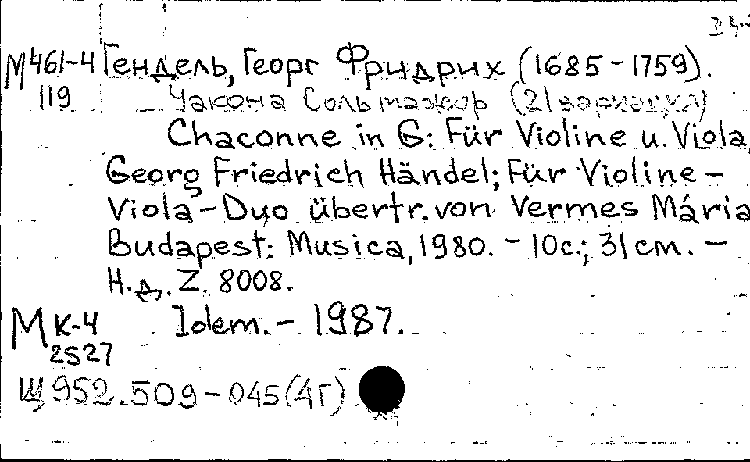 М461-4 Гендель, Георг Фридрих (1685-1759).
119 Чакона Соль мажор (21 вариация)
Chaconne in G: Für Violine u. Viola,
Georg Friedrich Händel; Für Violine-
Viola-Duo übertr. von Vermes Mária
Budapest: Musica, 1980. - 10с.; 31 cm. -
Н.д. Z. 8008.
М К-4 Idem. - 1987.
2527
Щ952.509-045(4Г)